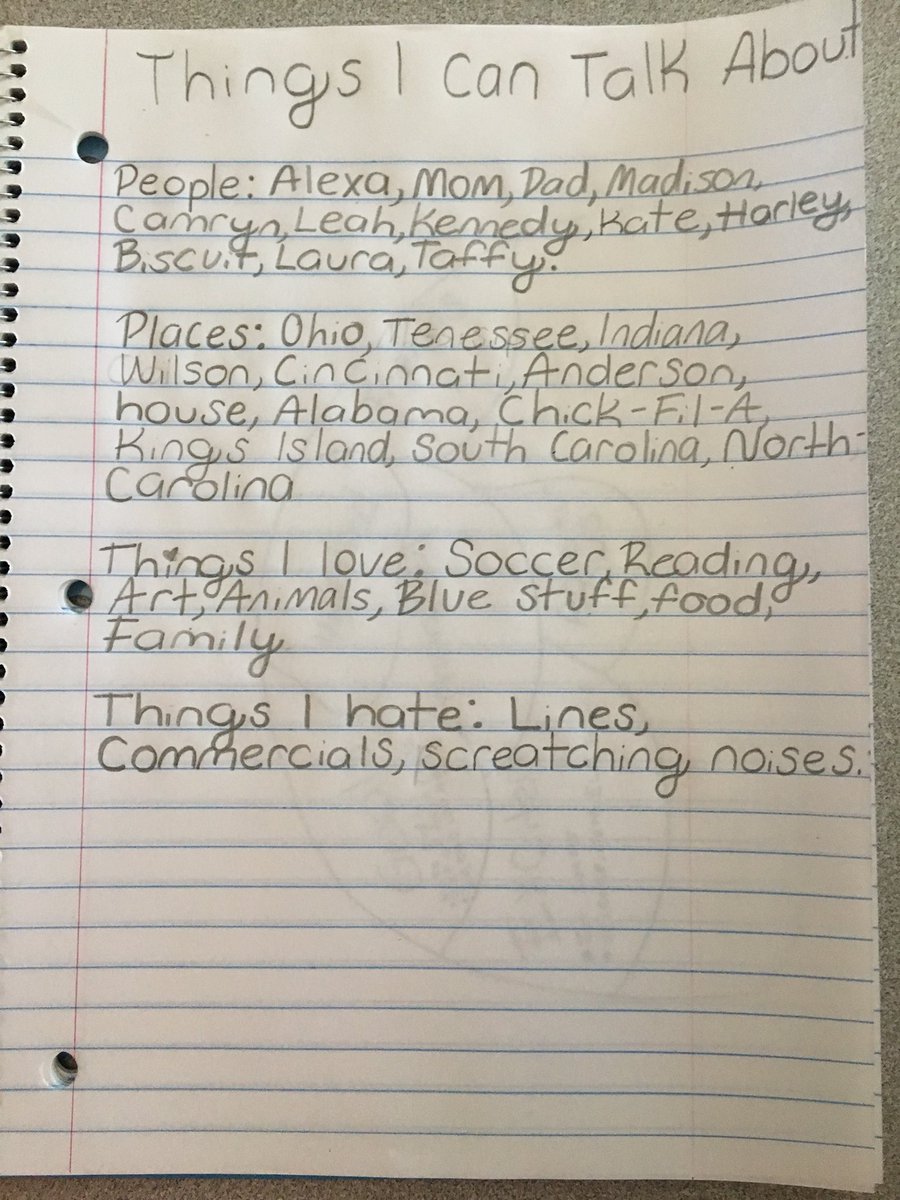 Things I Can Talk About
People: Alexa, Mom, Dad, Madison,
Camryn, Leah, Kennedy, Kate, Harley,
Biscuit, Laura, Taffy.
Places: Ohio, Tenessee, Indiana,
Wilson, Cincinnati, Anderson,
house, Alabama, Chick-Fil-A,
Kings Island, South Carolina, North-
Carolina
Things I love: Soccer, Reading,
Art, Animals, Blue stuff, food,
Family
Things I hate: Lines,
Commercials, screatching noises.